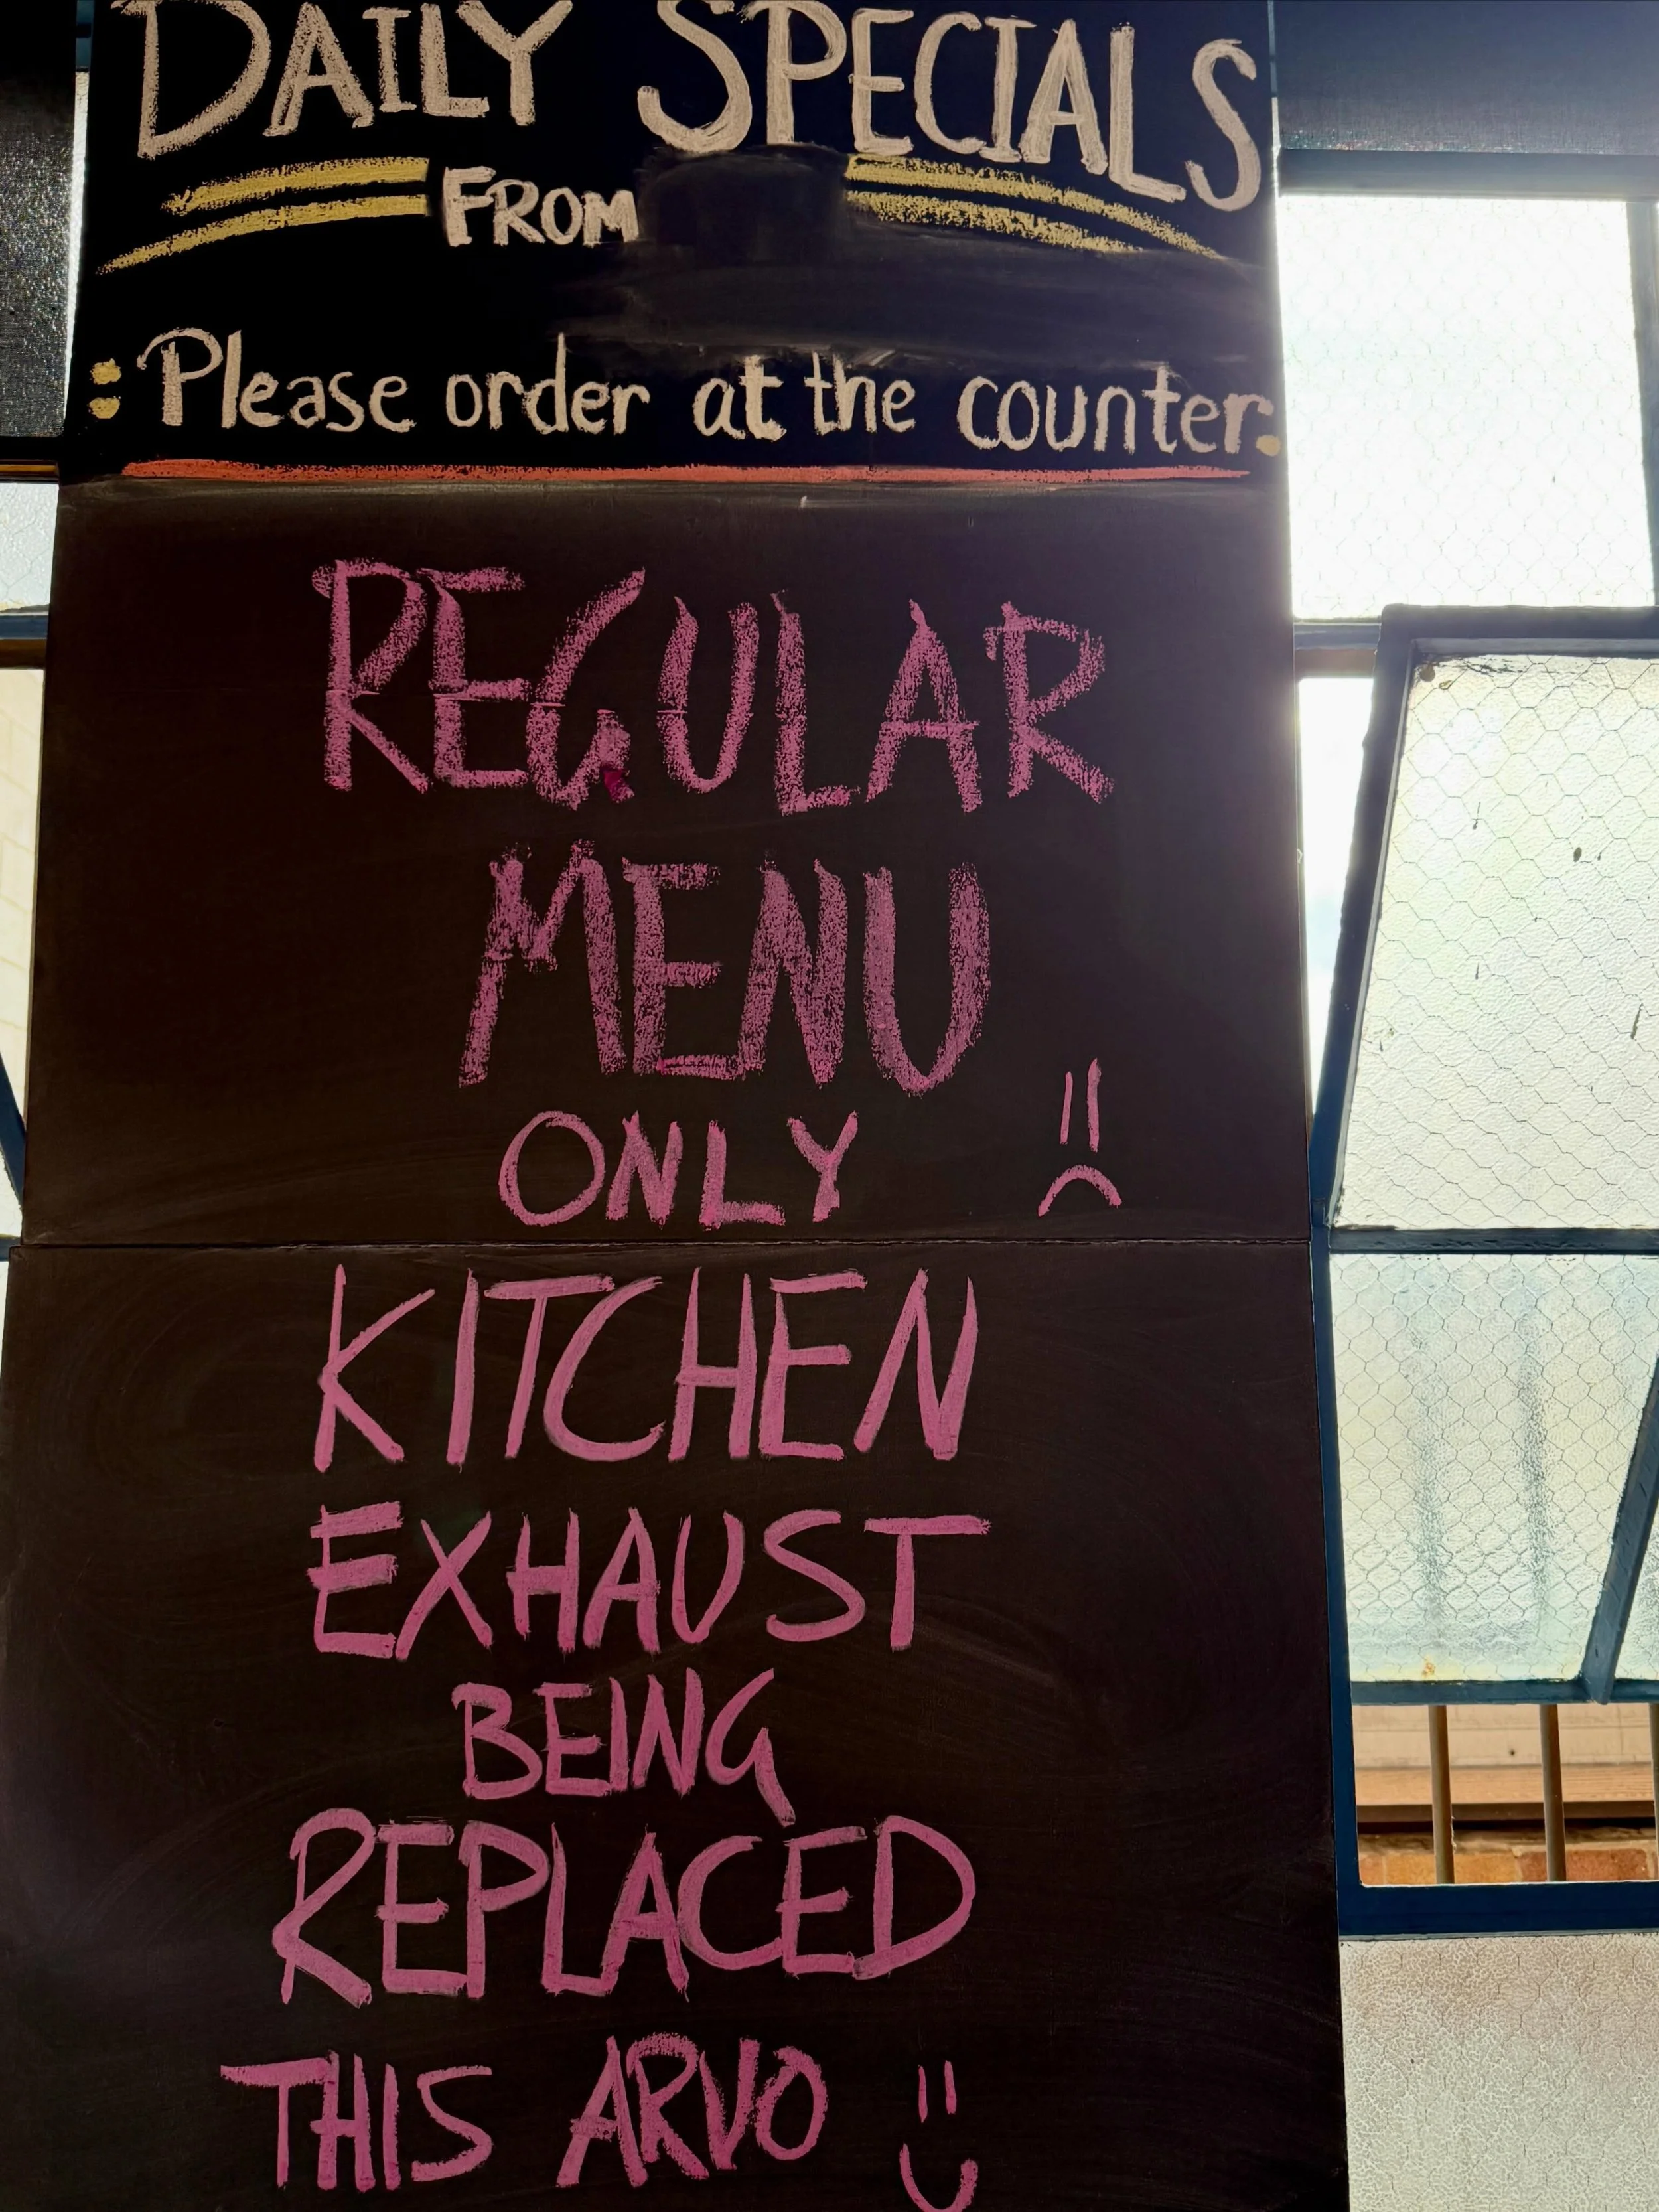 DAILY SPECIALS
FROM
: Please order at the counter:
REGULAR
MENU
ONLY
KITCHEN
EXHAUST
BEING
REPLACED
THIS ARVO